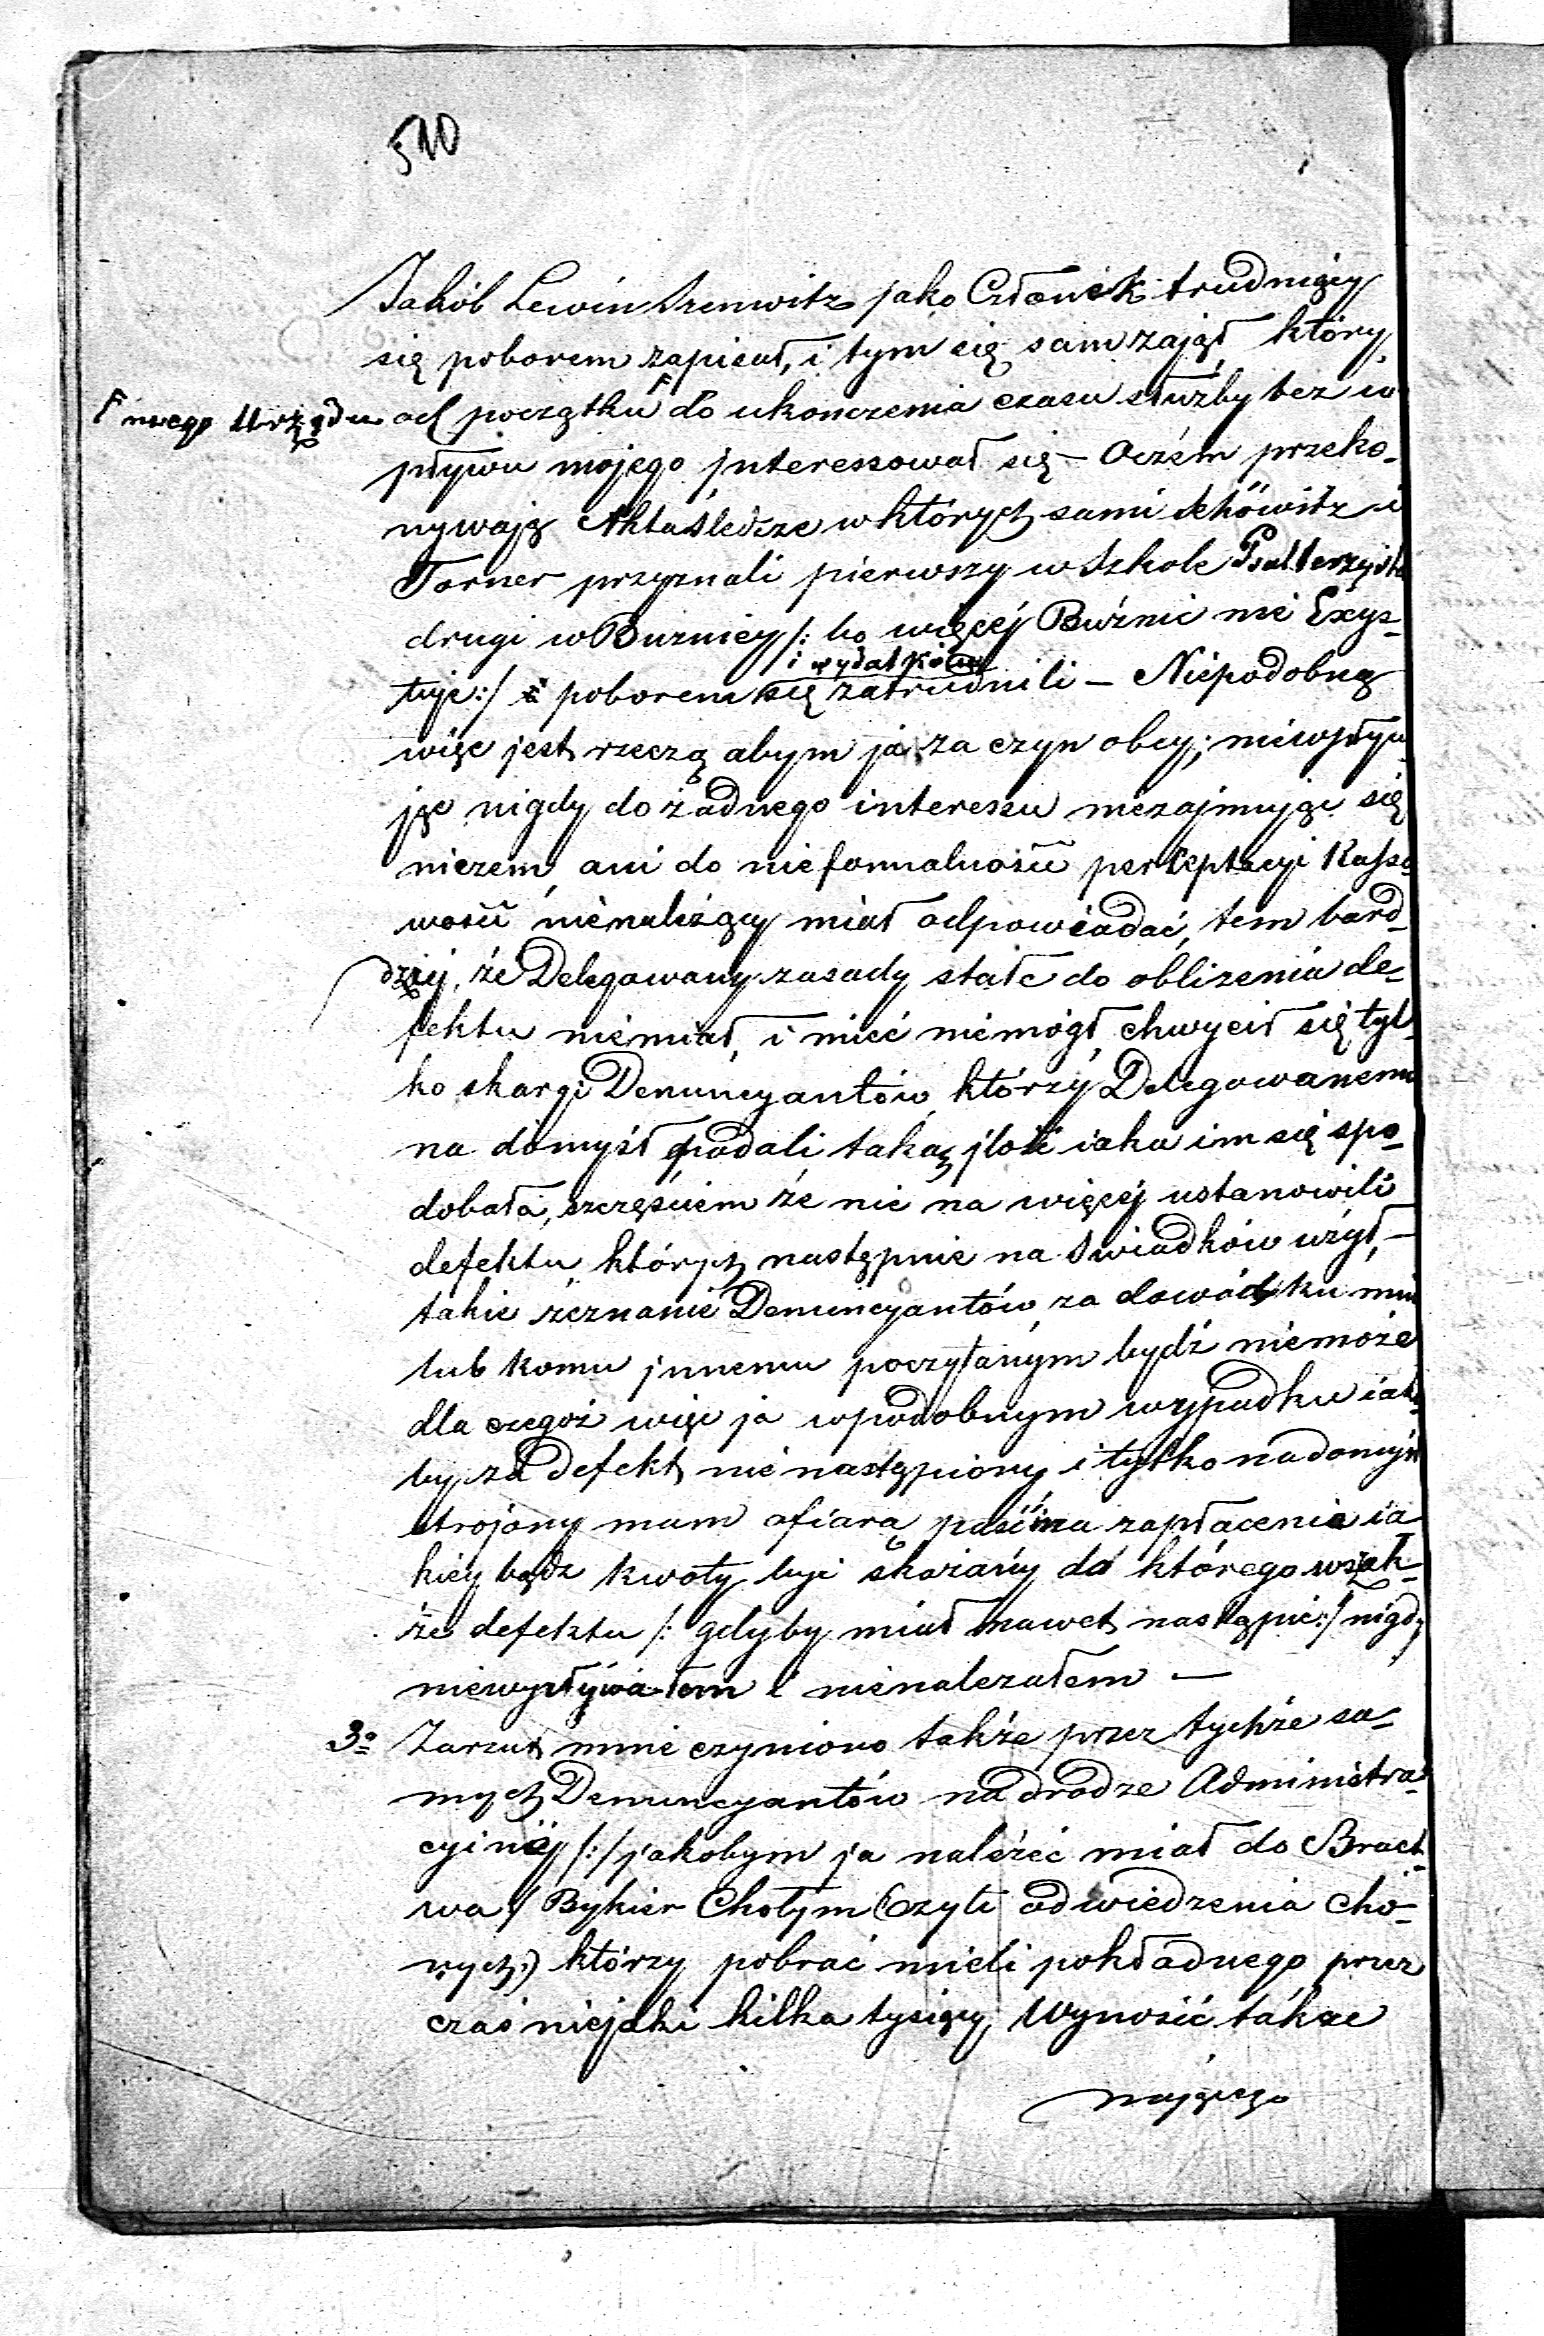 510
Jakób Lewin Szenwitz jako Członek trudniący
się poborem zapisał, i tym się sam zajął który
Γ swego Urzędu
od początku Γ do ukonczenia czasu służby bez w
pływu mojego interessował się – Oczém przeko-
nywają Akta śledcze w których sami Schöwitz i
Torner przyznali pierwszy w Szkole Psalterzysta
drugi w Buznicy /: bo więcéj Bużnic nie Exys-
i wydatków
tuje :/ poborem się zatrudnili – Niepodobną
więc jest rzeczą abym ja za czyn obcy, niewpływa
jąc nigdy do żadnego interessu niezajmując się
niczem, ani do nieformalności perceptacyi Kasso
wości nienależący miał odpowiadać, tem bard-
dziéj, że Delegowany zasady stałe do oblizenia de-
fektu niemiał, i mieć niemógł, chwycił się tyl-
ko skargi Denuncyantów, którzy Delegowanemu
na domysł podali taką ilość iaka im się spo-
dobała, szczęściem że nie na więcéj ustanowili
defektu, których następnie na Swiadków użył, –
takie zeznanie Denuncyantów za dowód ku mnie
lub komu innemu poczytanym bydź niemoże
dla czegoż więc ja w podobnym wypadku iako
by za defekt nie nastąpiony i tylko na domysł
strojony mam ofiarą paść i na zapłacenie ia-
kiéy bądz kwoty być skazany do którego wszak-
że defektu /: gdyby miał nawet nastąpić :/ nigdy
niewpływałem i nienalezałem –
3o Zarzut mnie czyniono także przez tychże sa-
mych Denuncyantów na drodze Administra-
cyinéj /:/ jakobym ja należéć miał do Bract-
wa / Bykier Chołym (czyli odwiedzenia cho-
rych:) którzy pobrać mieli pokładnego przez
czas niejaki kilka tysięcy, Wynosić także
mającego